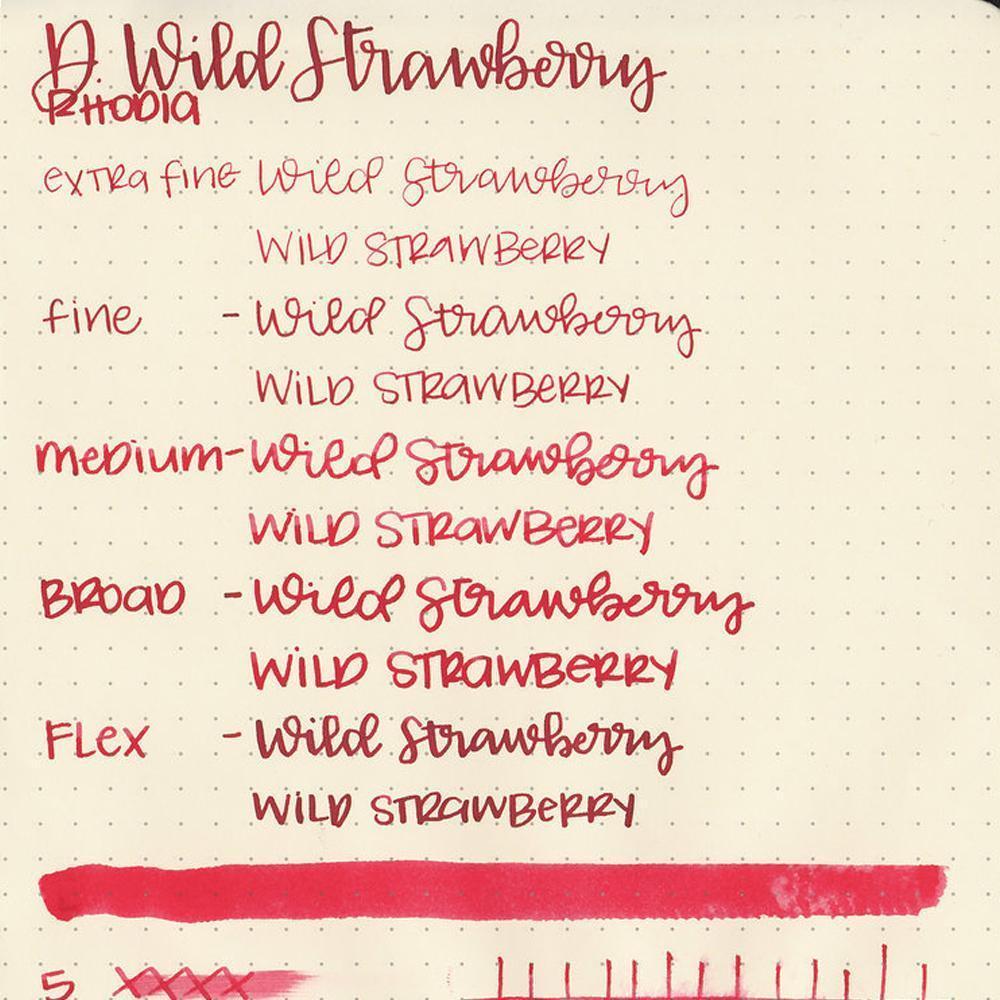 D. Wild Strawberry
RHODIA
extra fine Wild Strawberry
WILD STRAWBERRY
fine - Wild Strawberry
WILD STRAWBERRY
medium - Wild Strawberry
WILD STRAWBERRY
BROAD - Wild Strawberry
WILD STRAWBERRY
FLex - Wild Strawberry
WILD STRAWBERRY
5 XXXX